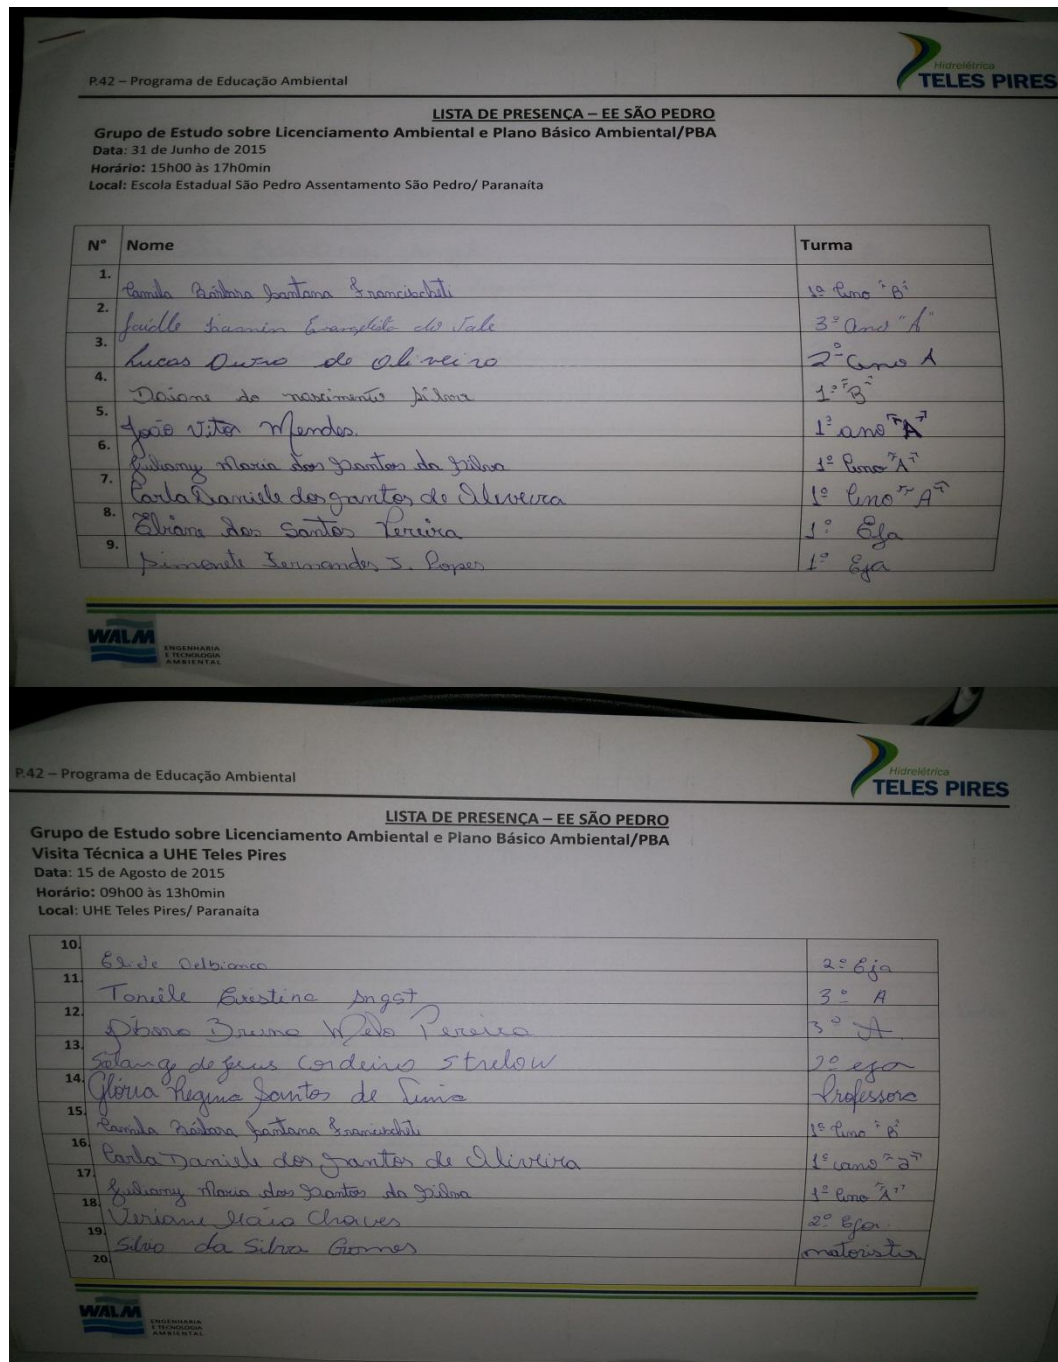 P.42 – Programa de Educação Ambiental
Hidrelétrica
TELES PIRES
LISTA DE PRESENÇA – EE SÃO PEDRO
Grupo de Estudo sobre Licenciamento Ambiental e Plano Básico Ambiental/PBA
Data: 31 de Junho de 2015
Horário: 15h00 às 17h0min
Local: Escola Estadual São Pedro Assentamento São Pedro/ Paranaíta
N° Nome Turma
1. Camila Bárbara Santana Francischeti 1º Ano "B"
2. Evangelista do Vale 3º ano "A"
3. Lucas de Oliveira 2º ano A
4. Daiane do nascimento Silva 1º "B"
5. João Vitor Mendes. 1º ano "A"
6. Juliany Maria dos Santos da Silva 1º Ano "A"
7. Carla Daniele dos Santos de Oliveira 1º Ano "A"
8. Eliane dos Santos Pereira 1º Eja
9. Simonete Fernandes J. Lopes 1º Eja
WALM
ENGENHARIA
E TECNOLOGIA
AMBIENTAL
P.42 – Programa de Educação Ambiental
Hidrelétrica
TELES PIRES
LISTA DE PRESENÇA – EE SÃO PEDRO
Grupo de Estudo sobre Licenciamento Ambiental e Plano Básico Ambiental/PBA
Visita Técnica a UHE Teles Pires
Data: 15 de Agosto de 2015
Horário: 09h00 às 13h0min
Local: UHE Teles Pires/ Paranaíta
10. Delbianco 2º Eja
11. Toniéle Cristina Angst 3º A
12. Bruna Melo Pereira 3º A
13. Solange de Jesus Cordeiro Strelow 2º eja
14. Glória Regina Santos de Professora
15. Camila Bárbara Santana Francischeti 1º Ano "B"
16. Carla Daniele dos Santos de Oliveira 1º ano "a"
17. Juliany Maria dos Santos da Silva 1º Ano "A"
18. Maia Chaves 2º Eja
19. Silvio da Silva Gomes motorista
20.
WALM
ENGENHARIA
E TECNOLOGIA
AMBIENTAL